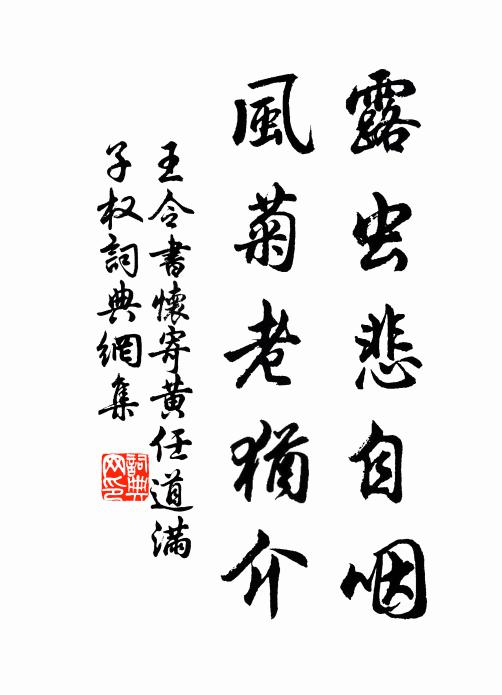 露虫悲自咽
風菊老猶介
王令書懷寄黄任道滿
子权詞典網集
詞典网印